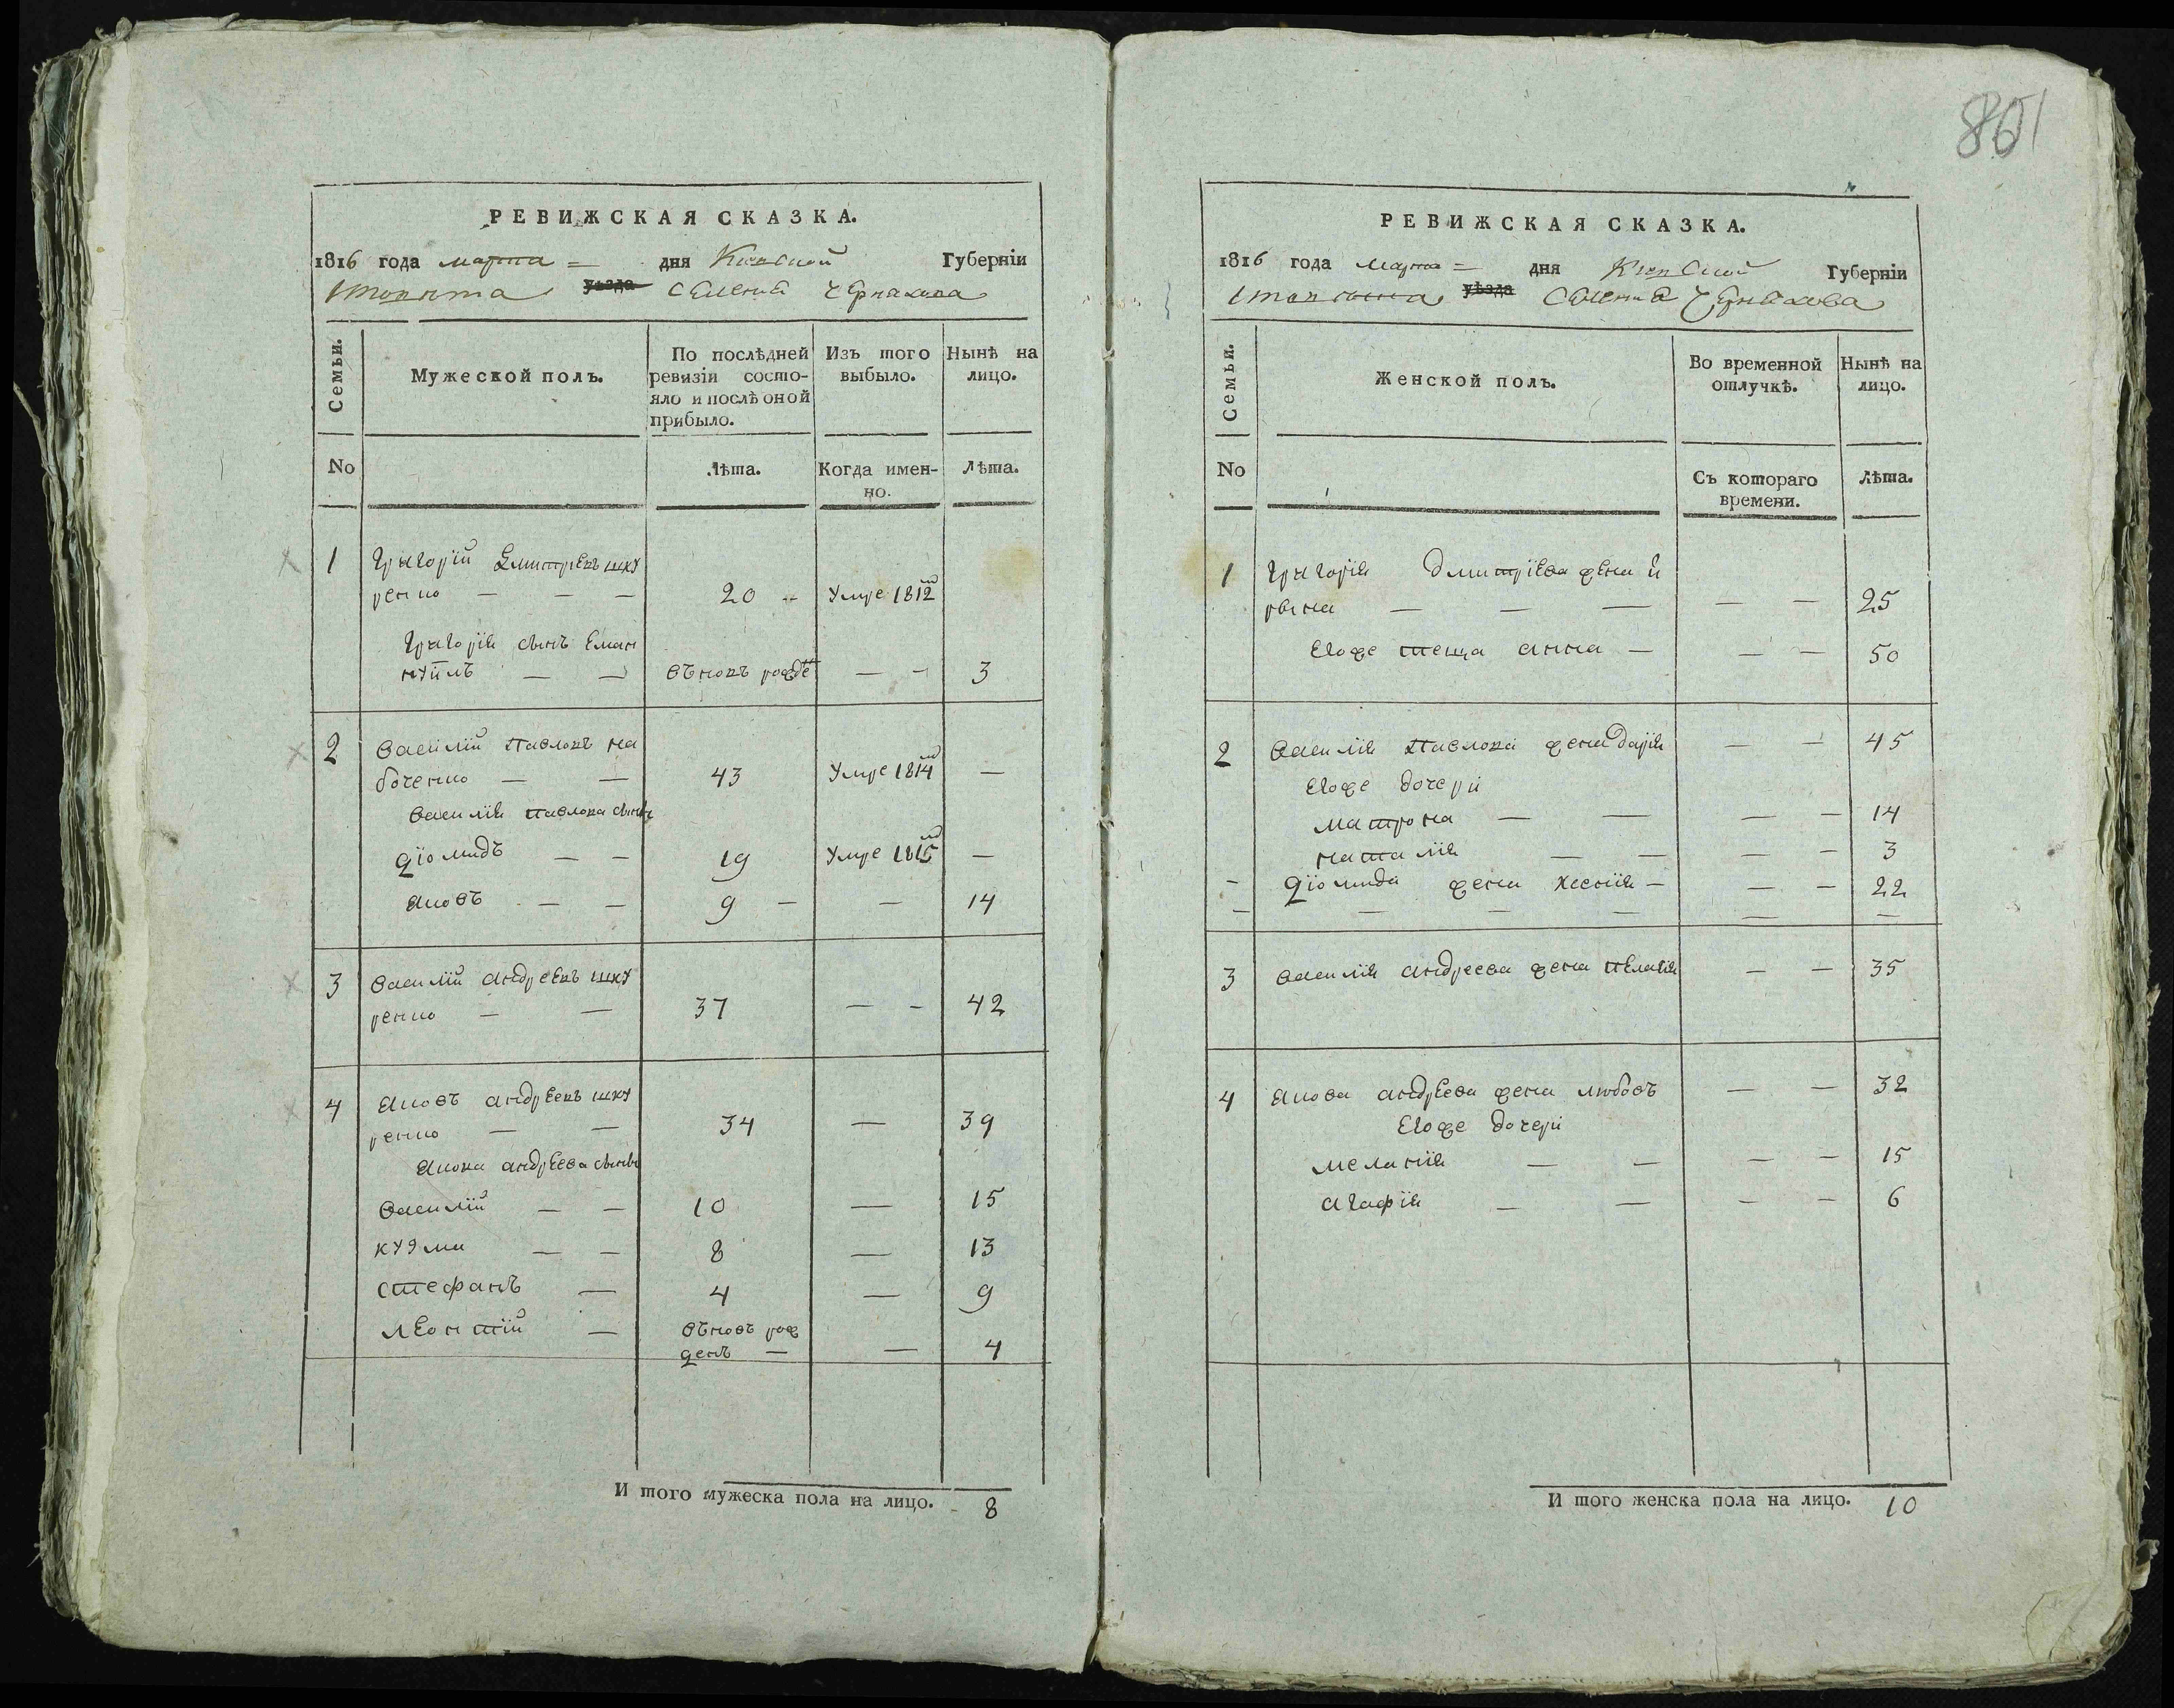 РЕВИЖСКАЯ СКАЗКА.
1816 года марта = дня Киевской Губернїи
уѣзда селенїя Черпакова
Семьи.
Мужеской полъ.
По послѣдней ревизїи состо-
яло и послѣ оной
прибыло.
Изъ того
выбыло.
Нынѣ на
лицо.
No
Лѣта.
Когда имен-
но.
Лѣта.
1 Григорій Дмитріевъ шку
ренко — — — 20 — Умре 1812
Григорія сынъ Еман
нуилъ — — въновь рожде — — 3
2 Василій Павловъ на
боченко — — 43 Умре 1814 —
Василія Павлова сынъ
Діомидъ — — 19 Умре 1815 —
Яковъ — — 9 — — 14
3 Василій Андреевъ шку
ренко — — 37 — — 42
4 Яковъ Андреевъ шку
ренко — — 34 — 39
Якова Андреева сыны
Василій — — 10 — 15
Кузма — — 8 — 13
Стефанъ — 4 — 9
Леонтій — въновь рож
денъ — — 4
И того мужеска пола на лицо. 8
861
РЕВИЖСКАЯ СКАЗКА.
1816 года марта = дня Киевской Губернїи
уѣзда селенїя Черпакова
Семьи.
Женской полъ.
Во временной
отлучкѣ.
Нынѣ на
лицо.
No
Съ котораго
времени.
Лѣта.
1 Григорія Дмитріева жена И
рына — — — — — 25
Егоже теща Анна — — — 50
2 Василія Павлова жена Дарія — — 45
Егоже дочери
Матрона — — — — 14
Наталія — — — — 3
— Діомида жена Ксенія — — — 22
— — — — — —
3 Василія Андреева жена Пелагія — — 35
4 Якова Андреева жена Любовъ — — 32
Егоже дочери
Меланія — — — — 15
Агафія — — — — 6
И того женска пола на лицо. 10